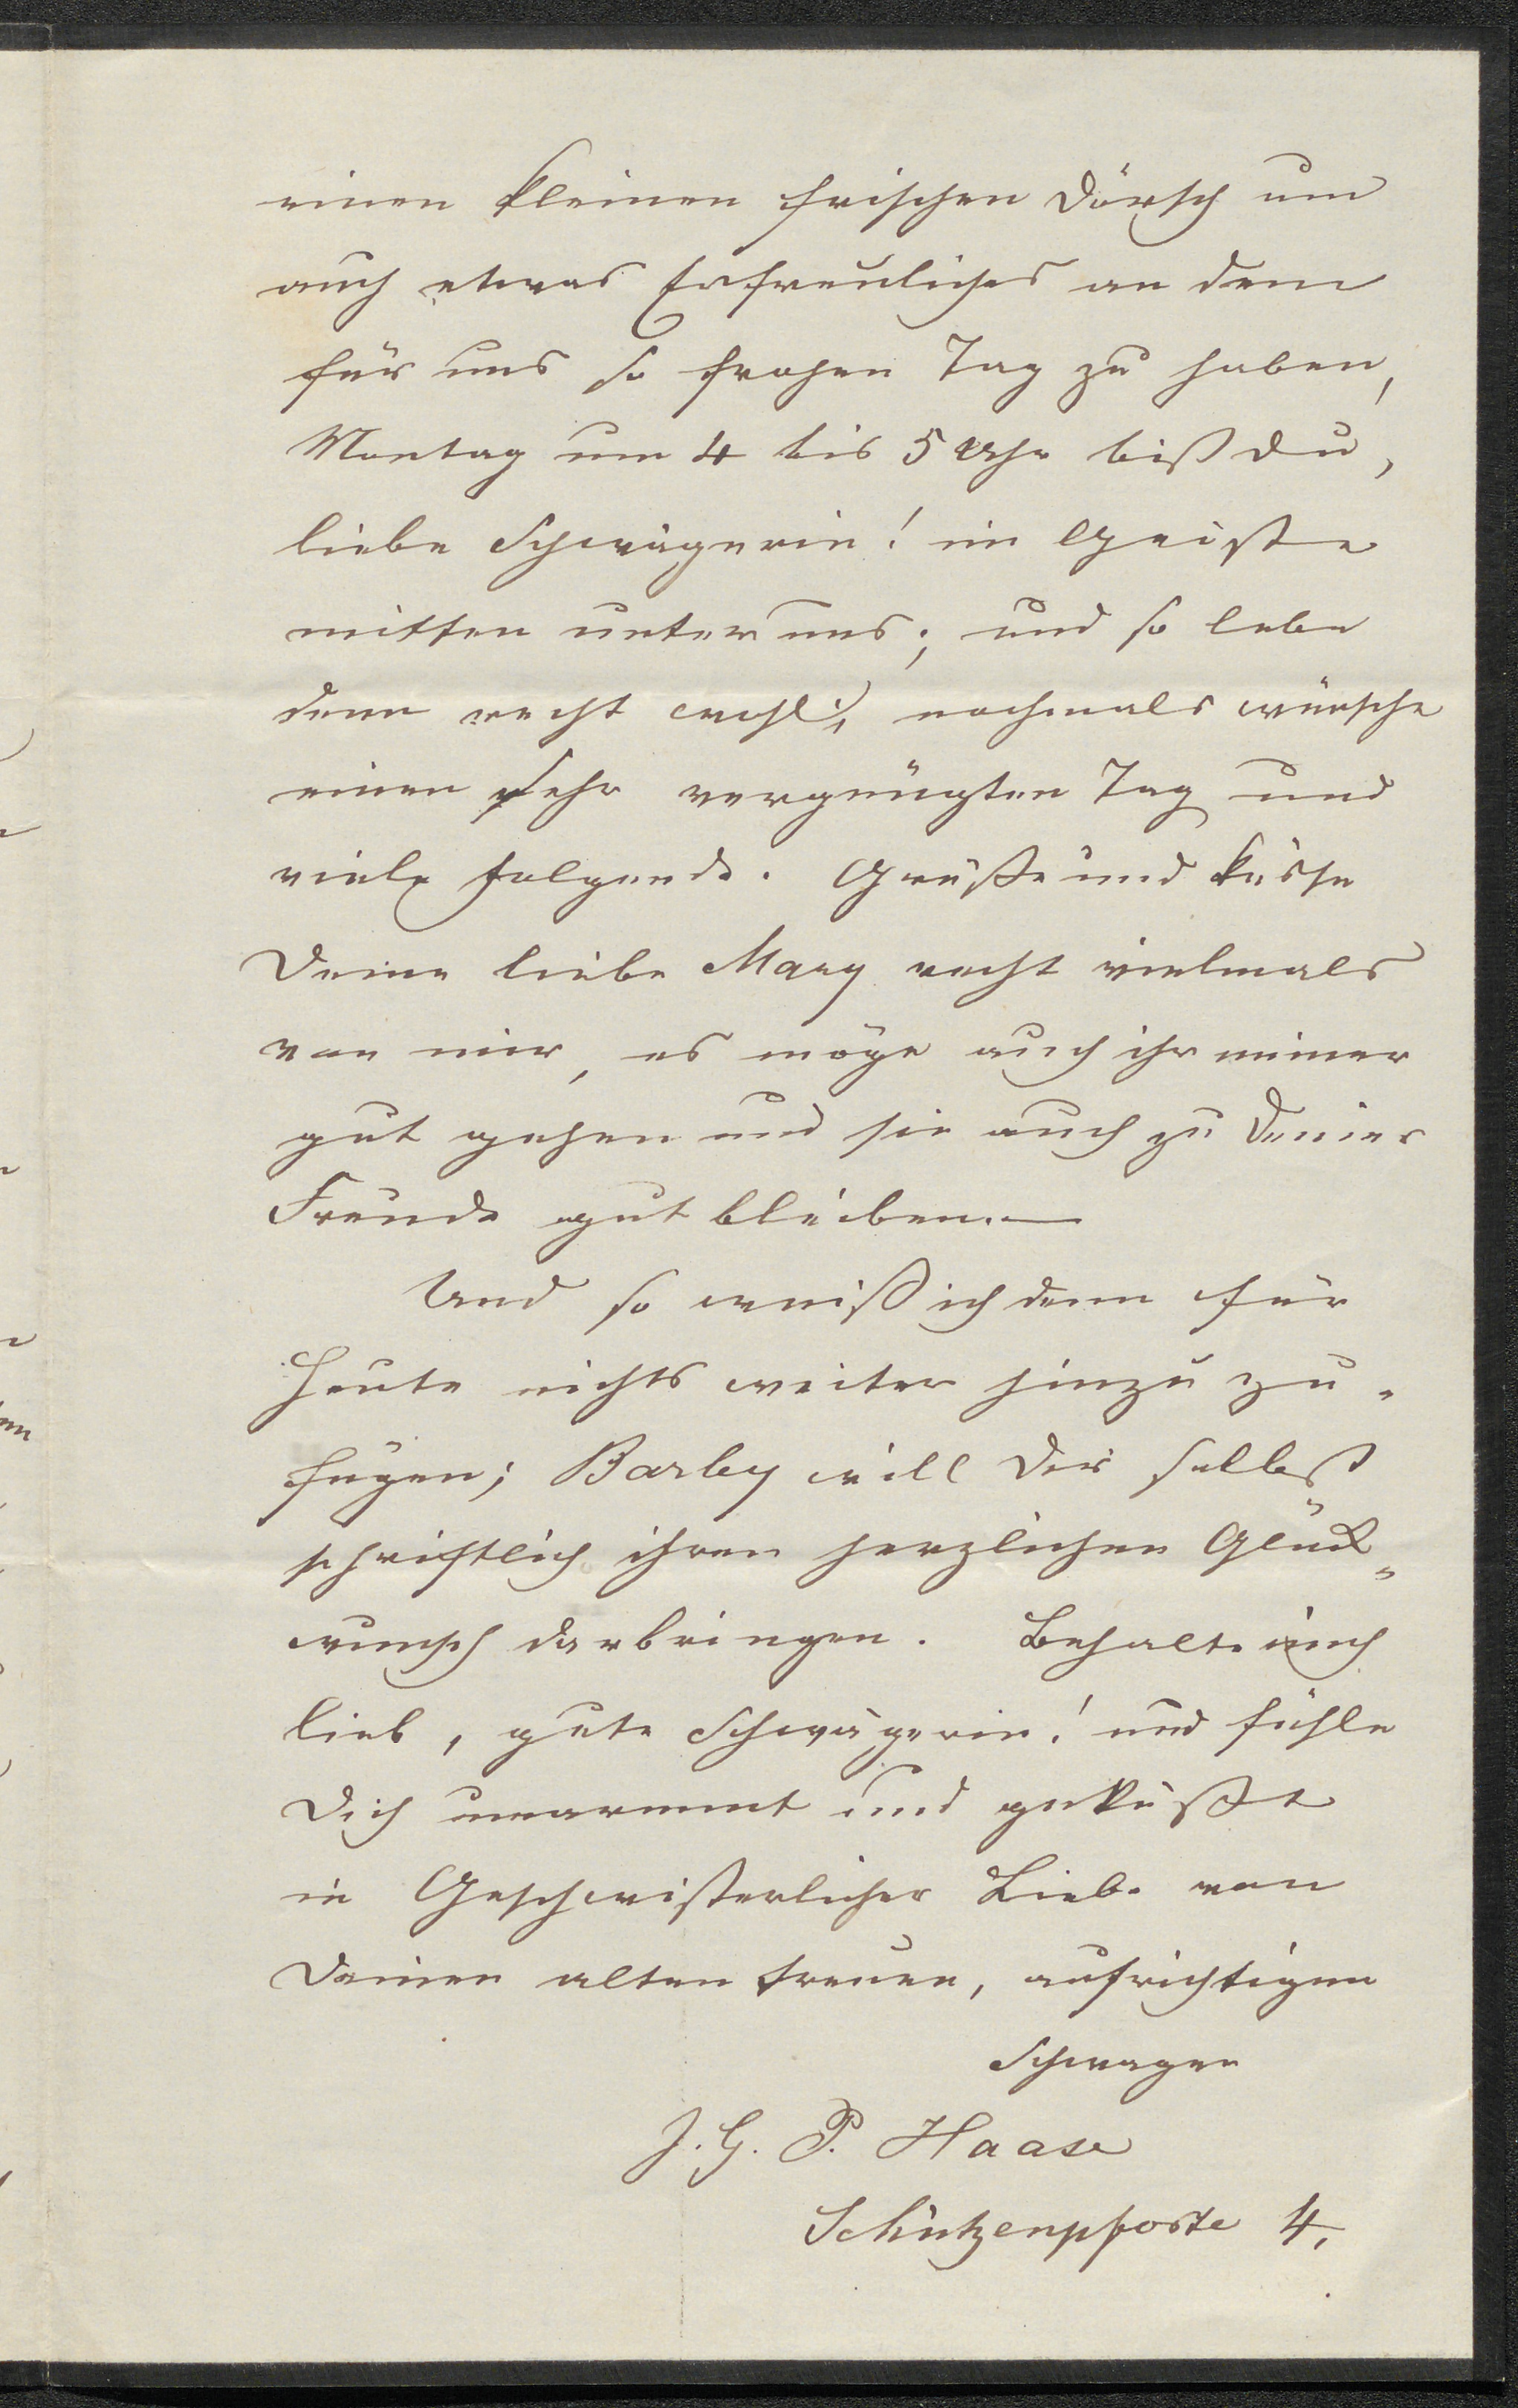 einen kleinen frischen Dörsch um
auch etwas Erfreuliches an dem
für uns so frohen Tag zu haben,
Montag um 4 bis 5 Uhr bist Du,
liebe Schwägerin! im Geiste
mitten unter uns; und so lebe
denn recht wohl; nochmals wünsche
einen sehr vergnügten Tag und
viele folgende. Grüße und küsse
Deine liebe Mary recht vielmals
von mir, es möge auch ihr immer
gut gehen und sie auch zu Deiner
Freude gut bleiben.—
Und so weiß ich denn für
Heute nichts weiter hinzu zu-
fügen; Barby will Dir selbst
schriftlich ihren herzlichen Glück-
wunsch darbringen. Behalte mich
lieb, gute Schwägerin! und fühle
Dich umarmt und geküßt
in Geschwisterlicher Liebe von
Deinen alten treuen, aufrichtigen
Schwager
J. G. P. Haase
Schützenpforte 4,